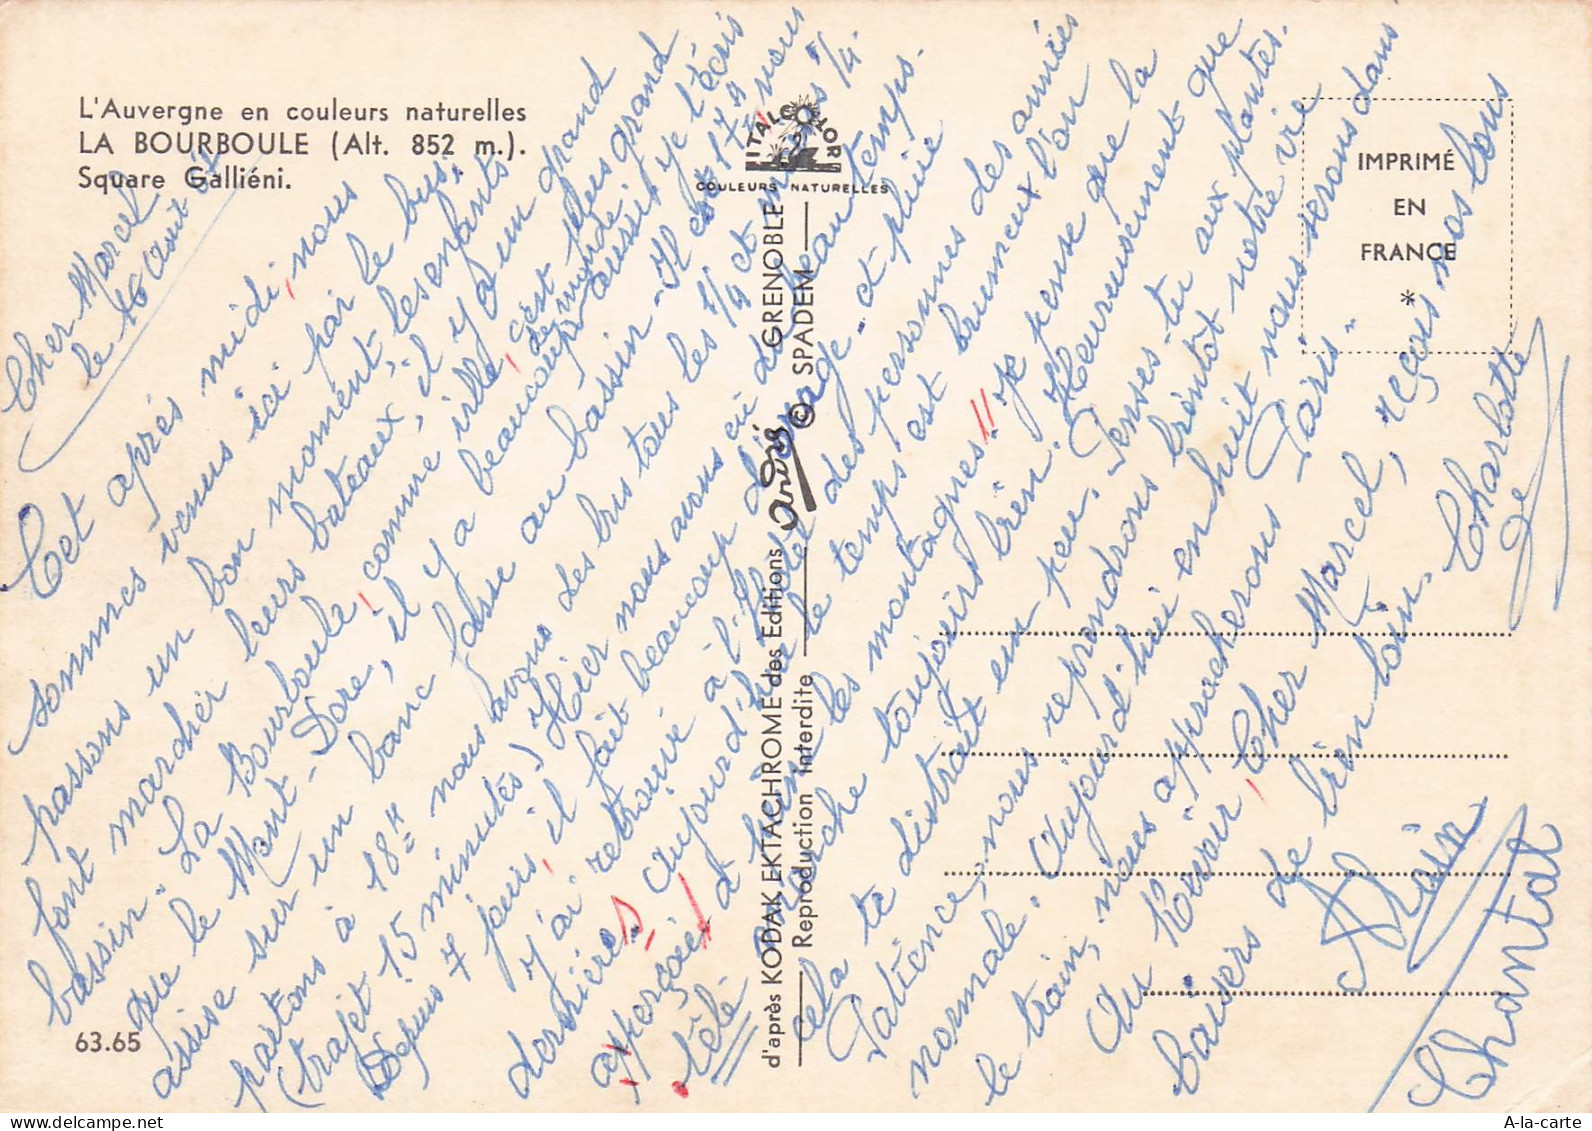 L'Auvergne en couleurs naturelles
LA BOURBOULE (Alt. 852 m.).
Square Galliéni.
ITALCOLOR
COULEURS NATURELLES
IMPRIMÉ
EN
FRANCE
*
Cher Marcel
le 16 Août
Cet après midi, nous
sommes venus ici par le bus,
passons un bon moment, les enfants
font marcher leurs bateaux, il y a un grand
bassin. La Bourboule, comme ville, c'est plus grand
que le Mont-Dore, il y a beaucoup de monde. je t'écris
assise sur un banc face au bassin - Il est 17H, nous
partons à 18H nous avons des bus tous les 1/4 et
(trajet 15 minutes) Hier nous avons eu du beau temps.
Depuis 7 jours, il fait beaucoup d'orage - et pluie
J'ai retrouvé à l'Hôtel des personnes des années
dernières. Aujourd'hui le temps est brumeux l'on
aperçoit à peine les montagnes. Je pense que la
télé marche toujours bien. Heureusement que
cela te distrait un peu. Penses-tu aux plantes.
Patience, nous reprendrons bientôt notre vie
normale. Aujourd'hui en huit nous serons dans
le train, nous approcherons Paris -
Au Revoir, Cher Marcel, reçois nos bons
baisers de bien loin. Charlotte
Alain
Chantal
d'après KODAK EKTACHROME des Editions André GRENOBLE
Reproduction Interdite © SPADEM
63.65
A-la-carte